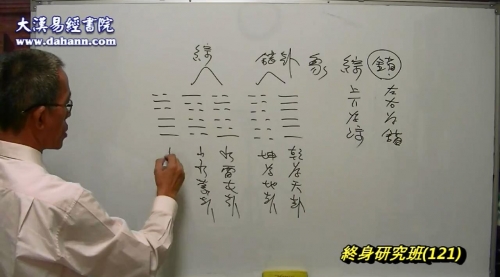 大漢易經書院
www.dahann.com
綜 錯卦 象 綜 錯
左右為錯
上下為綜
乾為天卦
坤為地卦
水雷屯卦
山水蒙卦
終身研究班(121)